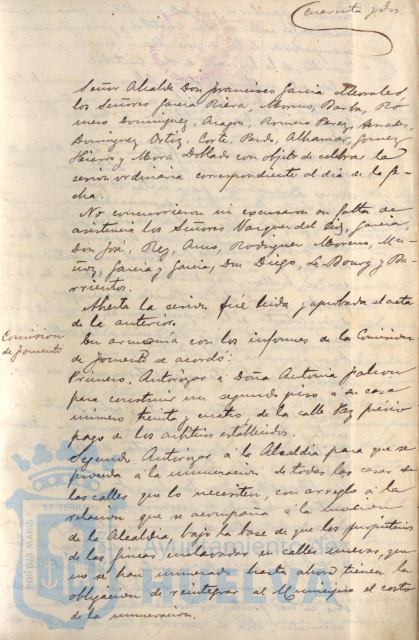 cuarenta y dos
Señor Alcalde Don Francisco Garcia Morales,
los Señores Garcia Riera, Moreno, Barba, Ro-
mero Dominguez, Aragon, Romero Perez,
Dominguez Ortiz, Corte, Pardo, Alhamar, Gomez
Hierro y Mora Doblado con objeto de celebrar la
sesion ordinaria correspondiente al dia de la fe-
cha.
No concurrieron ni escusaron su falta de
asistencia los Señores Vazquez del Garcia,
Don José, Rey, Amo, Rodriguez Moreno, Mu-
ñoz, Garcia y Garcia, Don Diego, Le Bourg y Ba-
rrientos.
Abierta la sesion fué leida y aprobada el acta
de la anterior.
Comision
de fomento
En armonia con los informes de la Comision
de fomento se acordó:
Primero. Autorizar á Doña Antonia Falcon
para construir un segundo piso á su casa
número treinta y cuatro de la calle Paz previo
pago de los arbitrios establecidos.
Segundo. Autorizar á la Alcaldia para que se
proceda á la numeracion de todas las casas de
las calles que lo necesiten, con arreglo á la
relacion que se acompaña á la mocion
de la Alcaldia bajo la base de que los propietarios
de las fincas enclavadas en calles nuevas, que
no se han numerado hasta ahora tienen la
obligacion de reintegrar al Municipio el costo
de la numeracion.
PORTUS MARIS
ET TERRAE
Ayuntamiento de
HUELVA